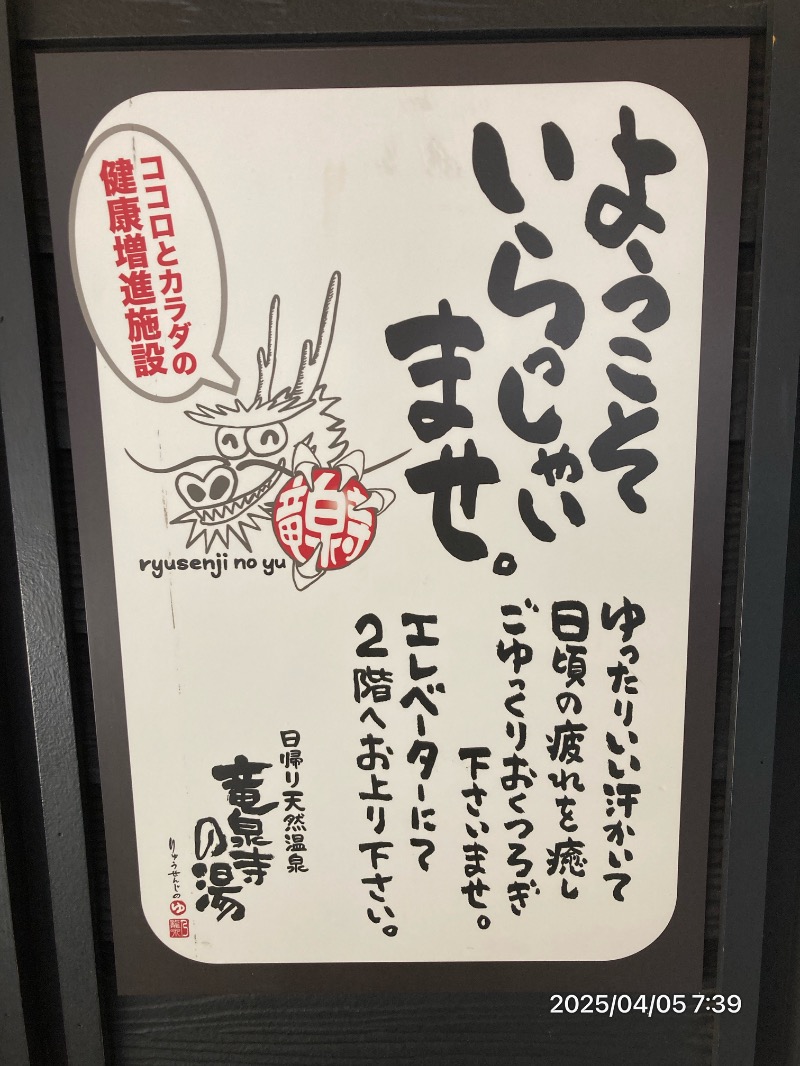 ようこそ
いらっしゃい
ませ。
ココロとカラダの
健康増進施設
竜泉寺
ryusenji no yu
ゆったりいい汗かいて
日頃の疲れを癒し
ごゆっくりおくつろぎ
下さいませ。
エレベーターにて
2階へお上り下さい。
日帰り天然温泉
竜泉寺
の湯
りゅうせんじの
ゆ
2025/04/05 7:39